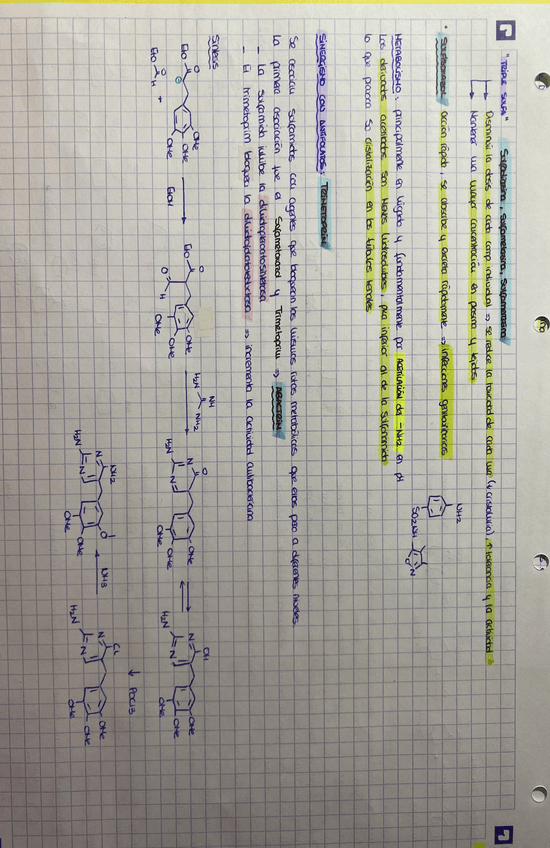 "TRIPLE SULFA" Sulfadiacina, sulfametacina, sulfameracina
Disminuir la dosis de cada comp. individual ⇒ se reduce la toxicidad de cada uno (↓ cristaluria), ↑ tolerancia y la actividad
Mantener una mayor concentración en plasma y tejidos
* SULFISOXAZOL Acción rápida, se absorbe y excreta rápidamente ⇒ infecciones genitourinarias
NH2
SO2NH
O
N
METABOLISMO: principalmente en hígado y fundamentalmente por ACETILACIÓN del -NH2 en p4
Los derivados acetilados son menos hidrosolubles, pKa inferior al de la sulfonamida
lo que provoca su cristalización en los túbulos renales
SINERGISMO CON ANTIFOLATOS: TRIMETOPRIM
Se asocian sulfamidas con agentes que bloquean las mismas rutas metabólicas que ellas pero a diferentes niveles.
La primera asociación fue el Sulfametoxazol y Trimetoprim ⇒ BACTRIM
- La sulfamida inhibe la dihidropteroatosintetasa
- El trimetoprim bloquea la dihidrofolatoreductasa ⇒ incrementa la actividad antibacteriana
Síntesis
EtO
O
OMe
OMe
OMe
+
EtO
O
H
EtOH
EtO
O
O
H
OMe
OMe
OMe
NH
H2N
NH2
O
N
N
H2N
OMe
OMe
OH
N
N
H2N
OMe
OMe
OMe
↓ POCl3
Cl
N
N
H2N
OMe
OMe
OMe
NH3
NH2
N
N
H2N
O
OMe
OMe